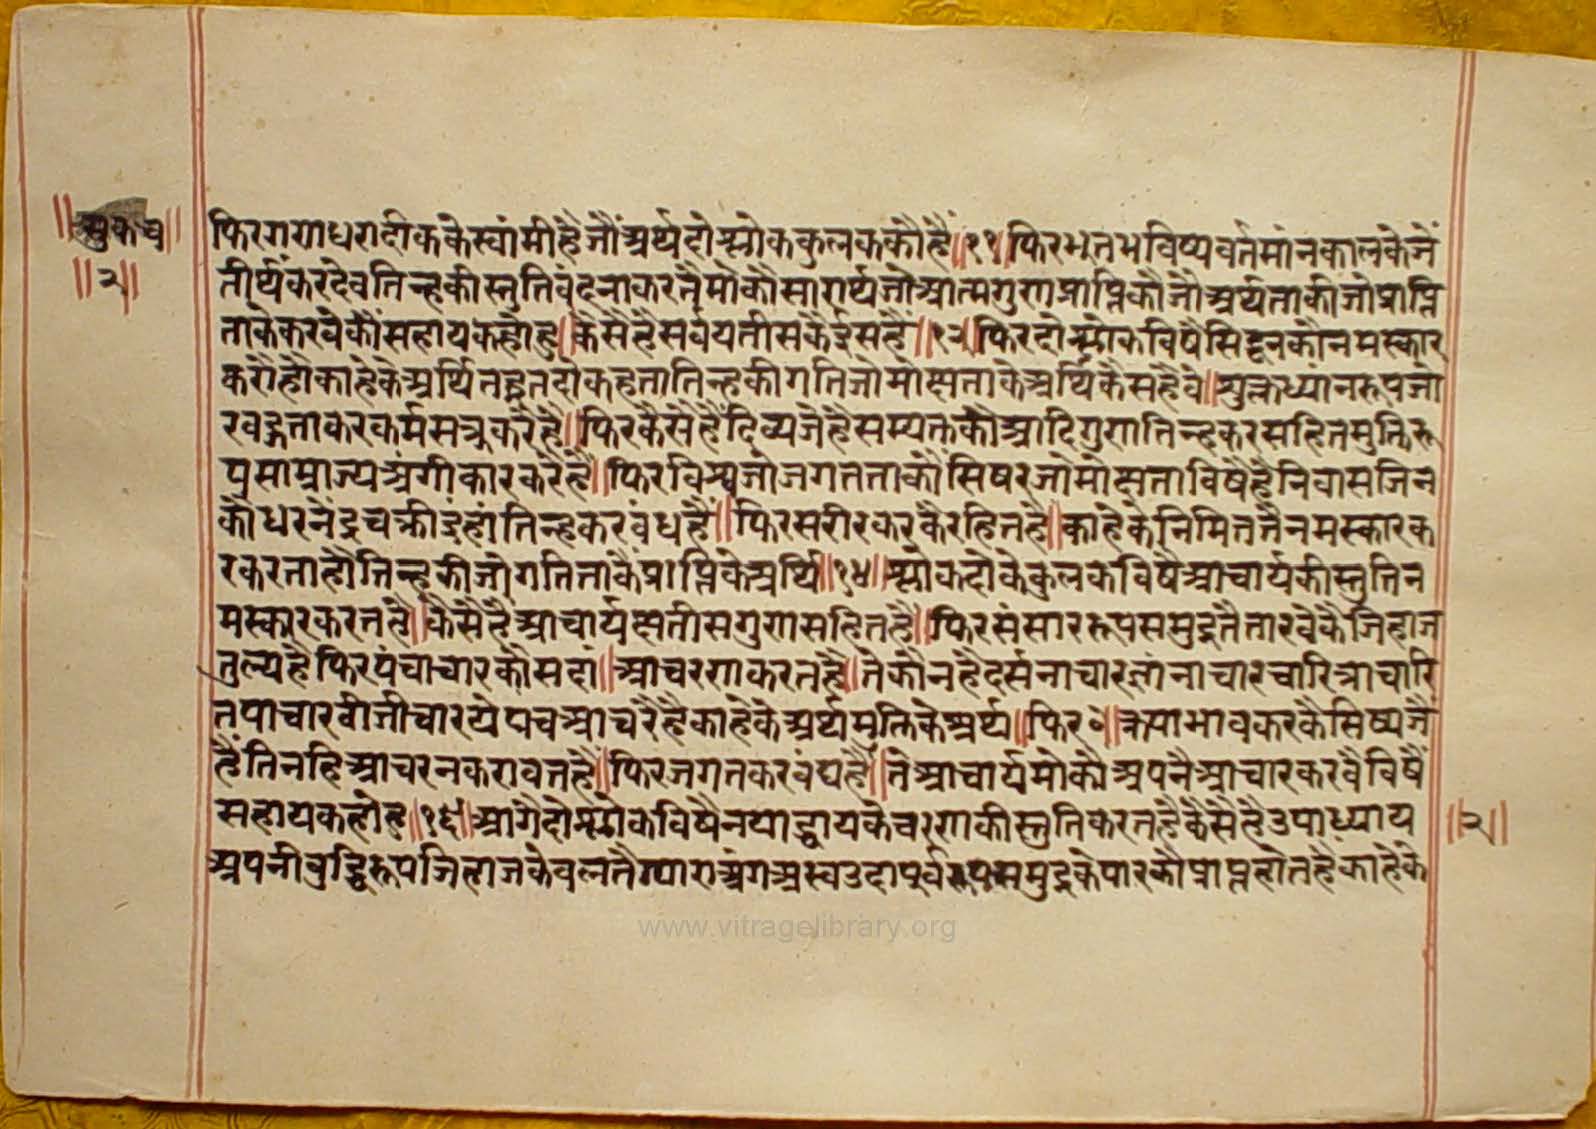 ॥सुकच॥
॥२॥
फिरगणधरादीककेस्वांमीहैजौंअर्यदोश्लोककुलककौहैं॥११॥फिरभूतभविष्यवर्तमांनकालकेजे
तीर्थंकरदेवतिन्हकीस्तुतिवंदनाकरतैमोकौसारार्थजोआत्मगुणप्राप्तिकौजोअर्थताकीजोप्राप्ति
ताकेकरवेकौंसहायकहोहु॥कैसेहैसर्वयतीसकेईसहैं॥१२॥फिरदोश्लोकविषैसिद्धनकौनमस्कार
करौहौकाहेकेअर्थितद्गतदोकहताातिन्हकीगतिजोमोक्षताकेअर्थिकैसहैवे॥सुक्लध्यांनरूपजो
खड्गताकरकर्मसत्रुकरैहै॥फिरकैसेहैंदिव्यजेहैसम्यक्तकौआदिगुणतिन्हकरसहितमुक्तिरू
पसाम्राज्यअंगीकारकरेहै॥फिरविश्वजोजगतताकौंसिषरजोमोक्षताविषैहैनिवासजिन
कौधरनेंद्रचक्रीइंहांतिन्हकरवंधहैं॥फिरसरीरकरकैरहितहै॥काहेकेनिमिततैनमस्कारक
रकरताहौतिन्हकीजोगतिताकैप्राप्तिकेअर्थि॥१४॥श्लोकदोकेकुलकविषैआचार्यकीस्तुतिन
मस्कारकरतहै॥कैसेहैंआचार्यक्षतीसगुणसहितहै॥फिरसंसाररूपसमुद्रतैतारवेकैजिहाज
तुल्यहैफिरपंचाचारकौसदां॥आचरणकरतहै॥तेकौनहैदर्सनाचारज्ञांनाचारचारित्राचारि
तपाचारवीर्जीचारत्येपचआचरैहैकाहेकेअर्थमुक्तिकेअर्थ॥फिर॥क्रपाभावकरकैसिष्यजै
हैंतिनहिआचरनकरावतहै॥फिरजगतकरवंद्यहै॥तेआचार्यमोकौअपनैआचारकरवैविषैं
सहायकहोहु॥१६॥आगैदोश्लोकविषैनपाद्धायकेचरणकीस्तुतिकरतहैकैसेहैउपाध्याय
॥२॥
अपनीबुद्धिरूपजिहाजकेवलतैग्याराअंगअरुचउदापूर्वरूपसमुद्रकेपारकौप्राप्तहोतहैकाहेके
www.vitragelibrary.org